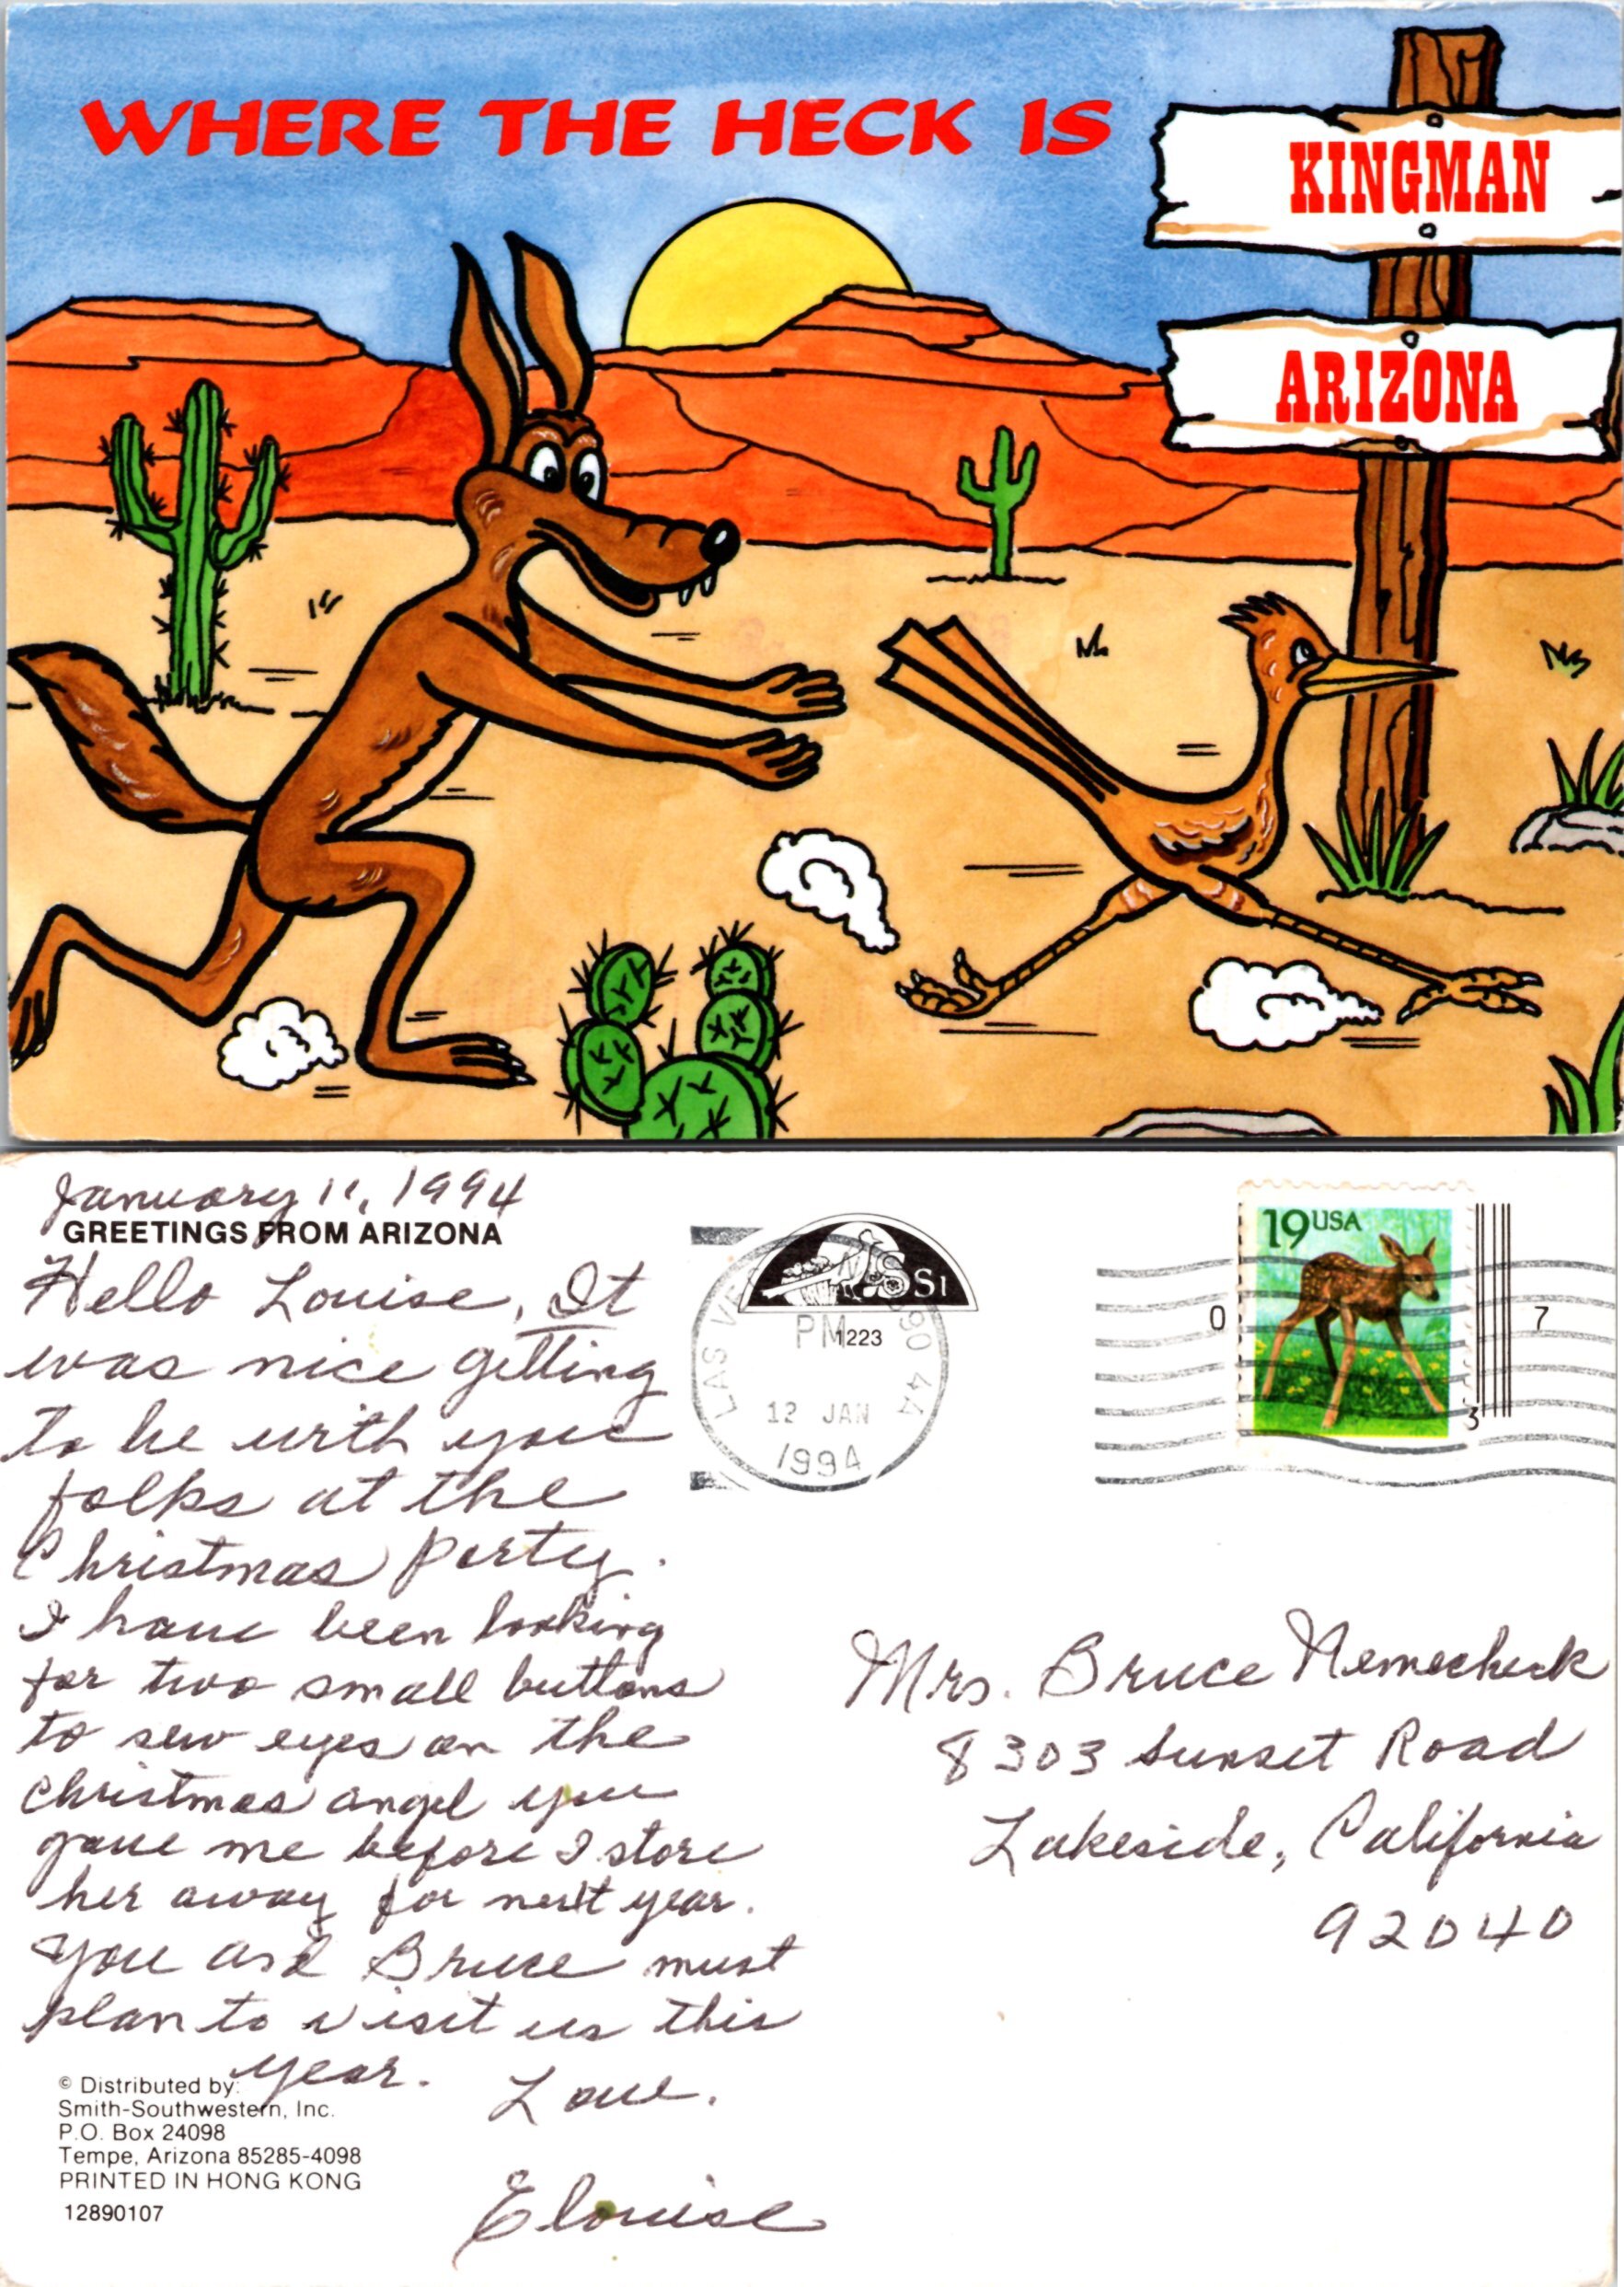 WHERE THE HECK IS
KINGMAN
ARIZONA
January 11, 1994
GREETINGS FROM ARIZONA
Hello Louise, It
was nice getting
to be with you
folks at the
Christmas Party.
I have been looking
for two small buttons
to sew eyes on the
Christmas angel you
gave me before I store
her away for next year.
You and Bruce must
plan to visit us this
year.
Love,
Elouise
© Distributed by:
Smith-Southwestern, Inc.
P.O. Box 24098
Tempe, Arizona 85285-4098
PRINTED IN HONG KONG
12890107
SSI
1223
LAS VE
PM
12 JAN
1994
19USA
0
7
3
Mrs. Bruce Nemecheck
8303 Sunset Road
Lakeside, California
92040